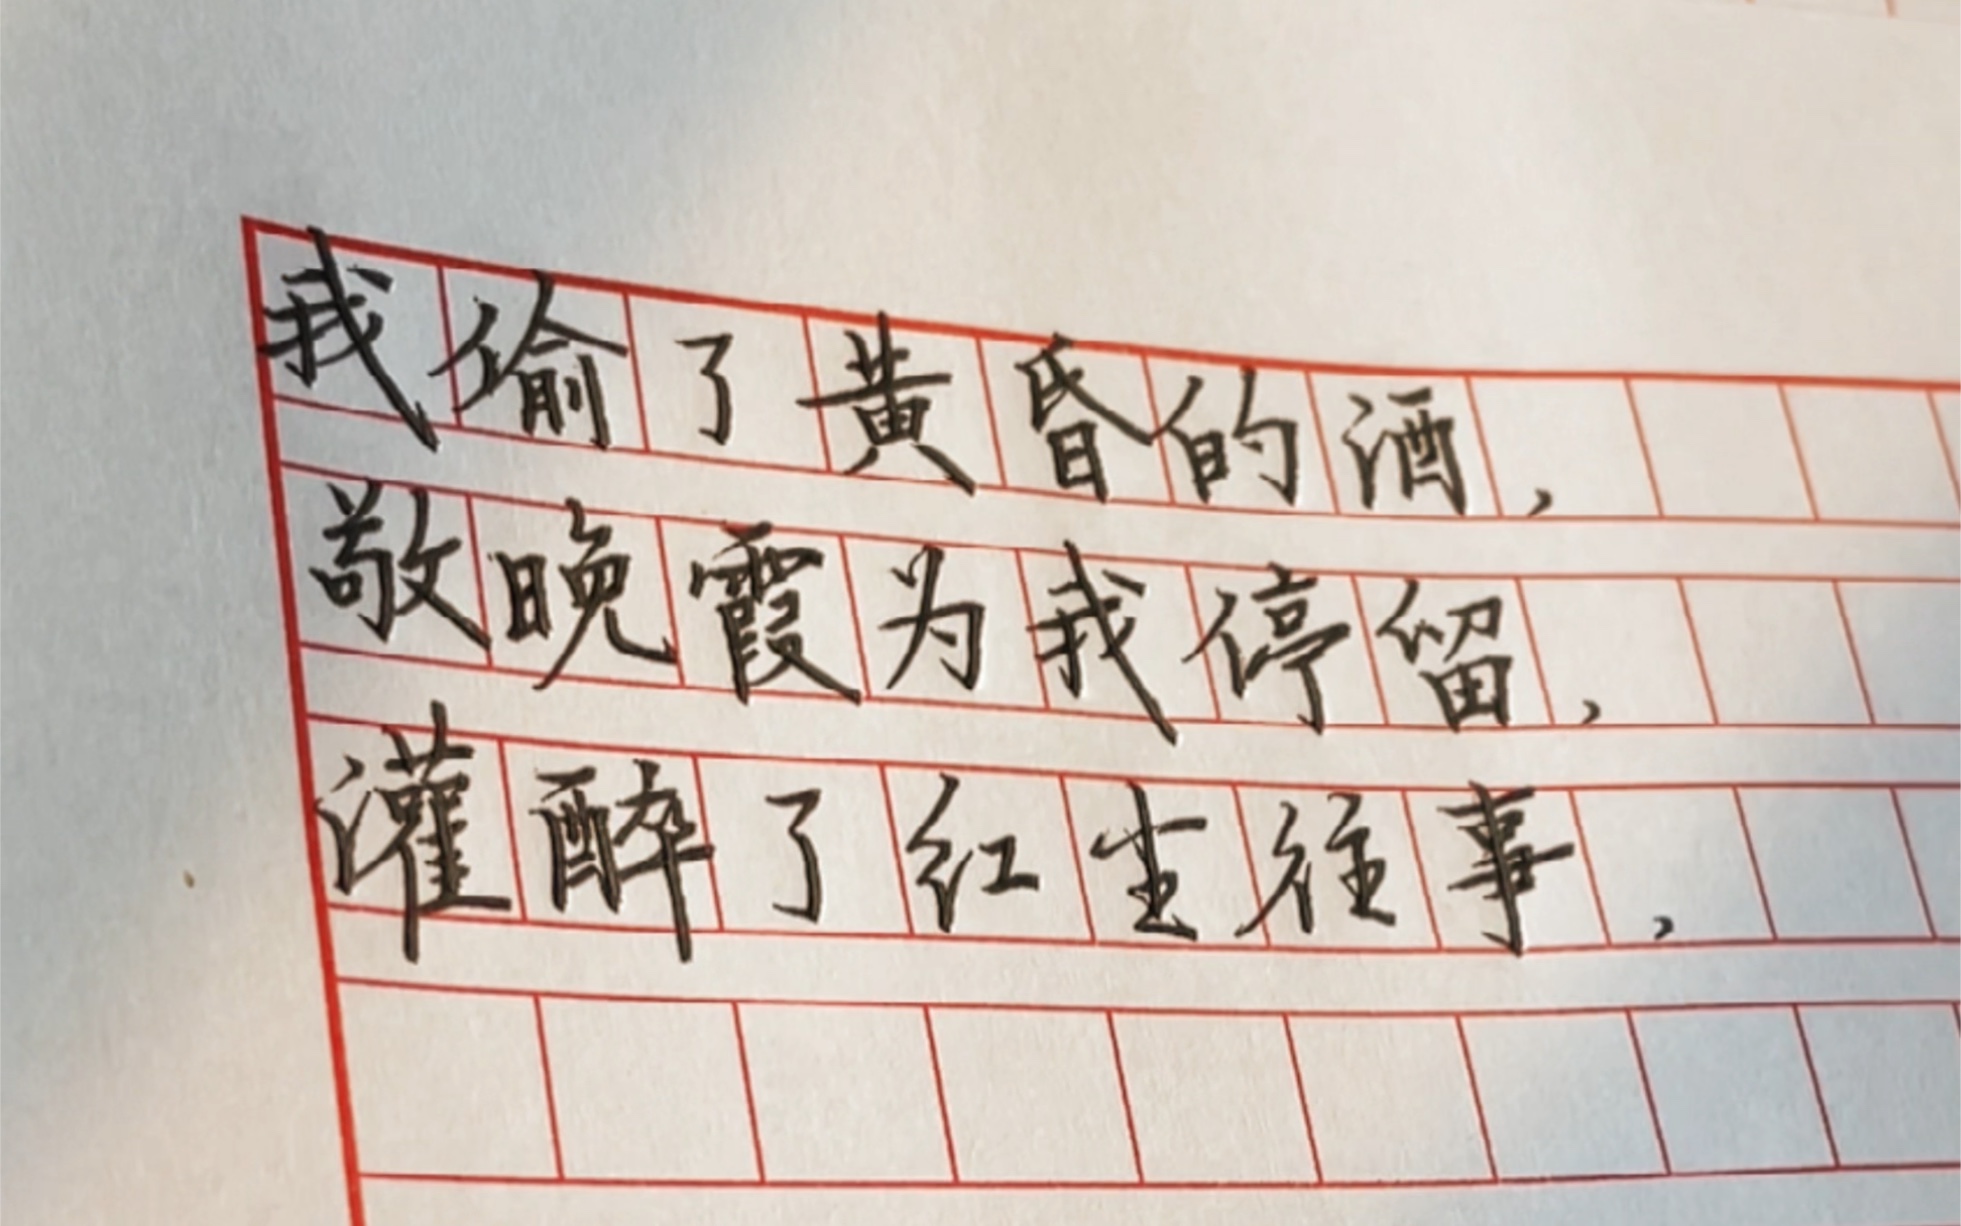 我偷了黄昏的酒，
敬晚霞为我停留，
灌醉了红尘往事，